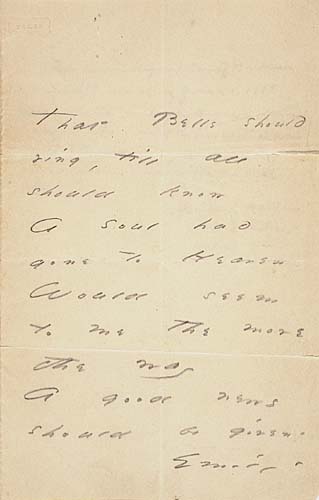 That Bells should
ring, till all
should know
A soul had
gone to Heaven
Would seem
to me the more
the way
A good news
should be given.
Emily.